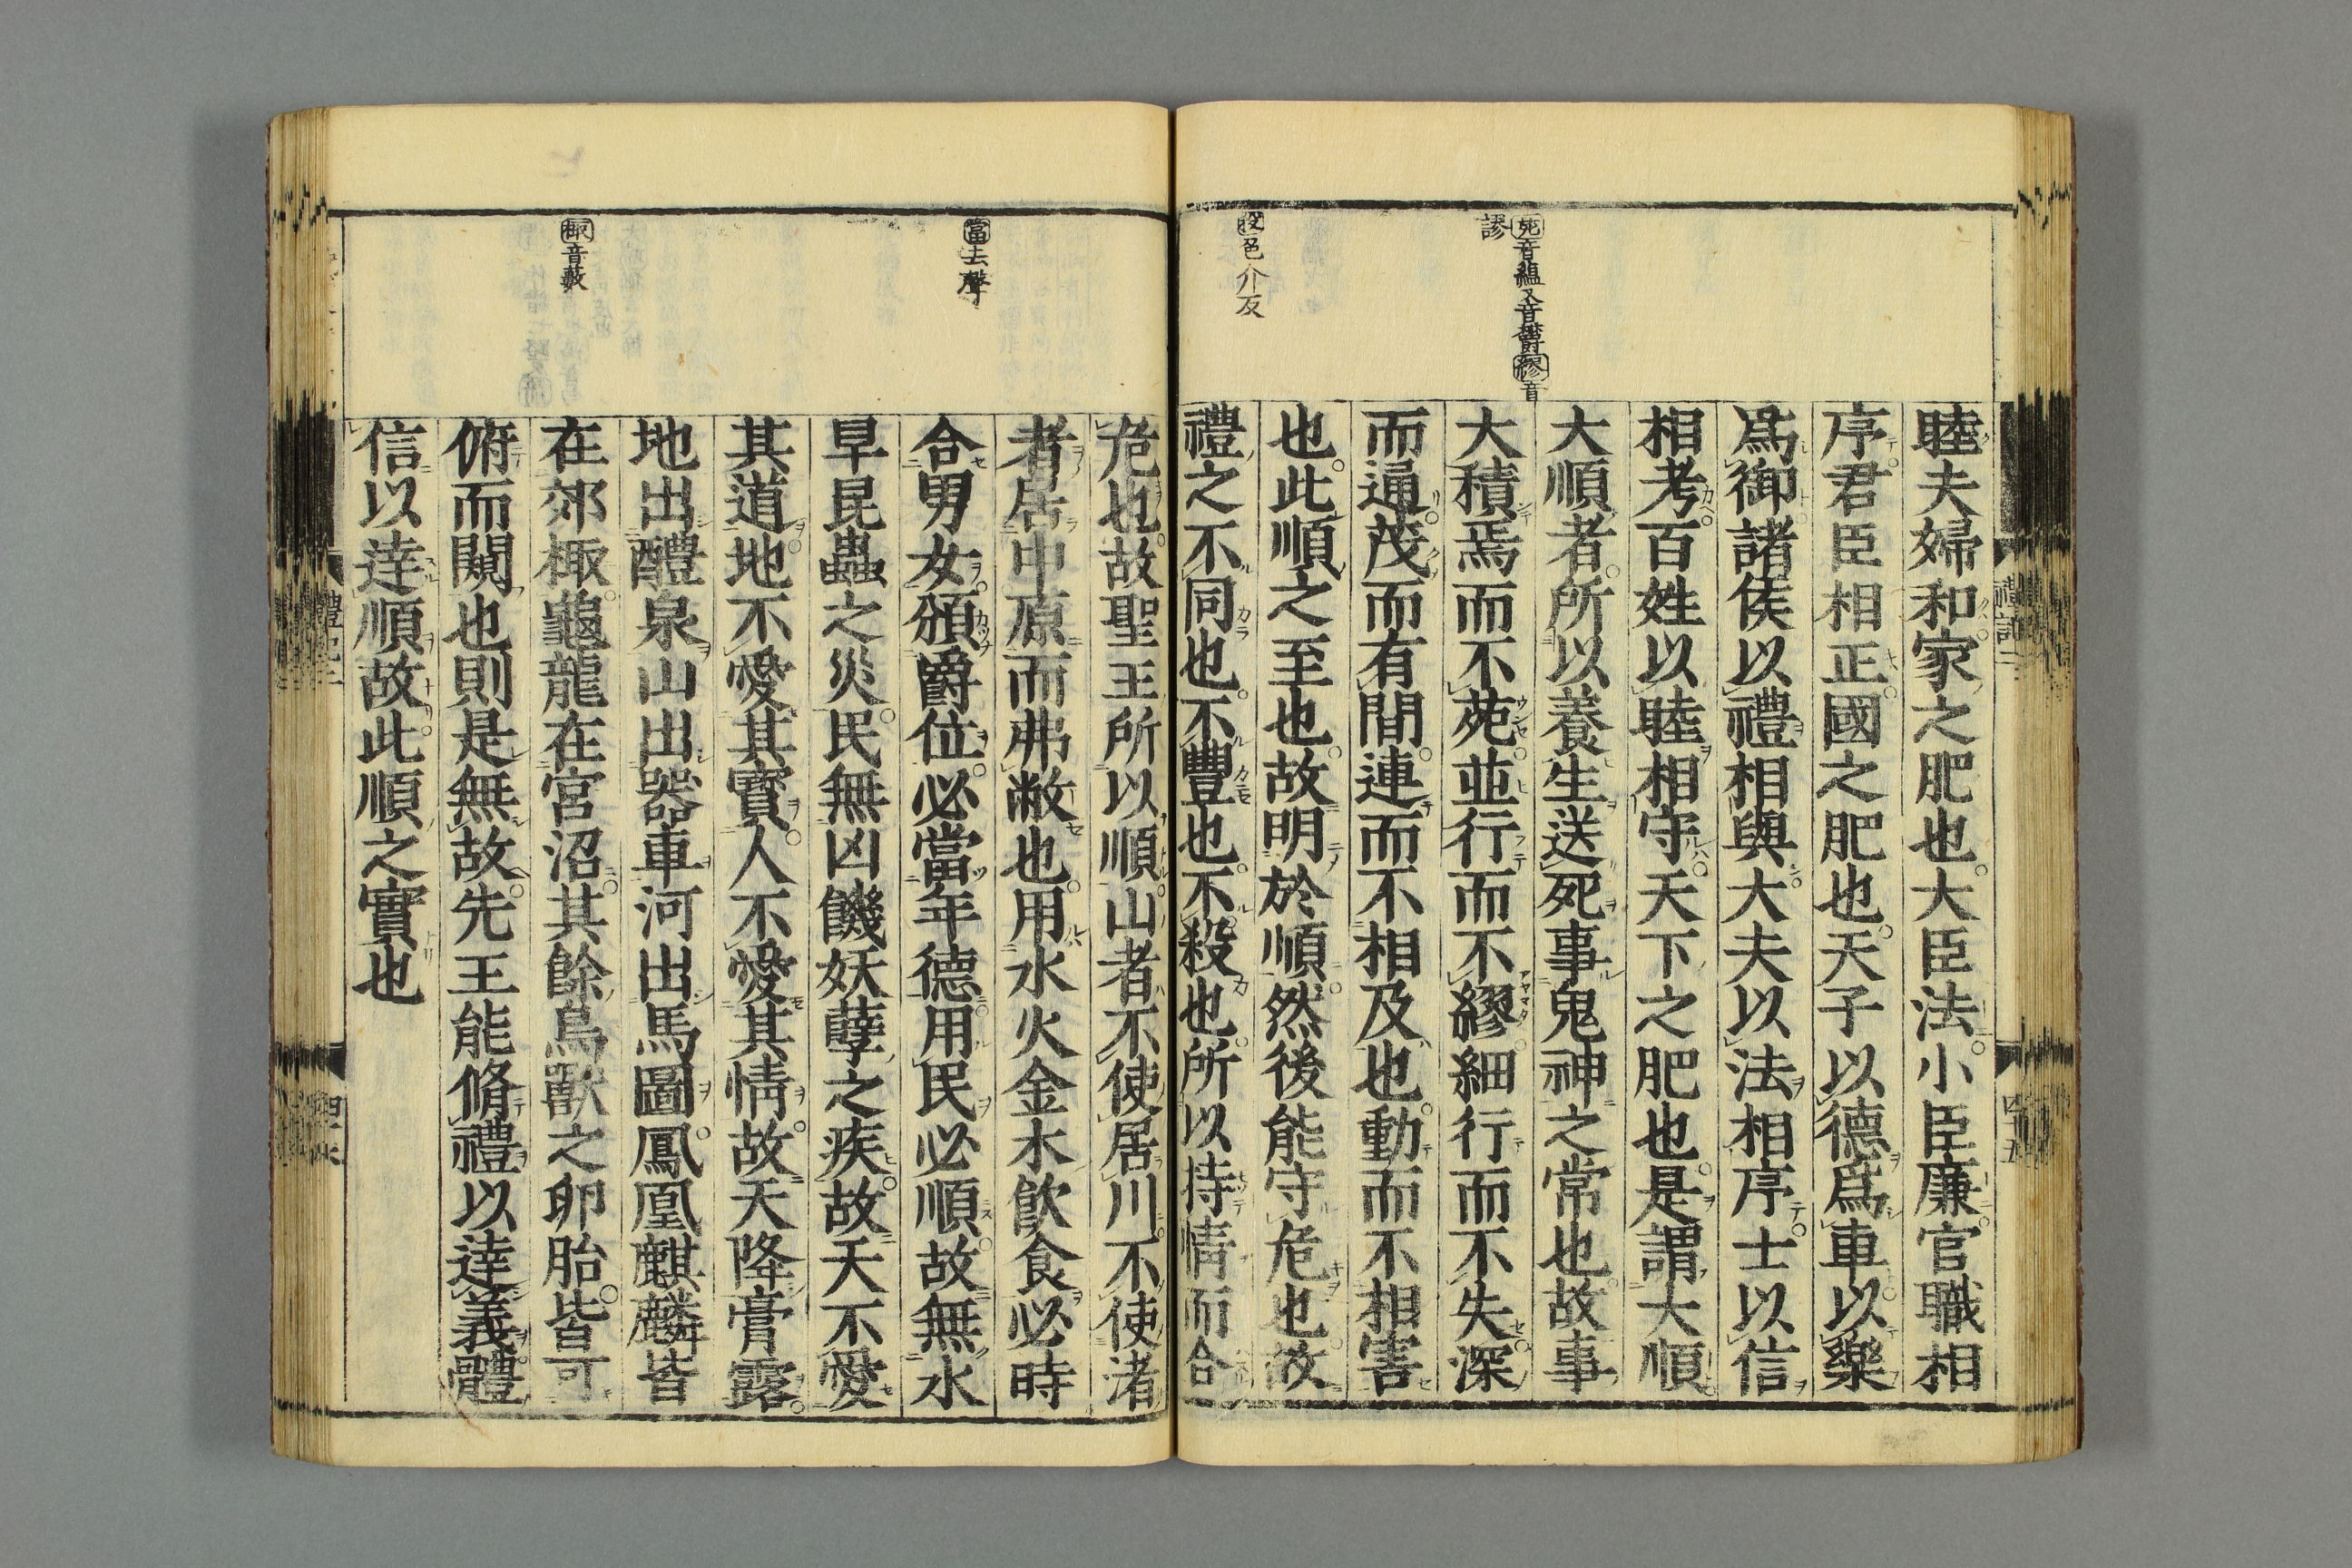 苑音蘊又音鬱繆音
謬
殺色介反
睦夫婦和家之肥也大臣法小臣廉官職相
序君臣相正國之肥也天子以德爲車以樂
爲御諸侯以禮相與大夫以法相序士以信
相考百姓以睦相守天下之肥也是謂大順
大順者所以養生送死事鬼神之常也故事
大積焉而不苑並行而不繆細行而不失深
而通茂而有間連而不相及也動而不相害
也此順之至也故明於順然後能守危也故
禮之不同也不豐也不殺也所以持情而合
當去聲
棷音藪
危也故聖王所以順山者不使居川不使渚
者居中原而弗敝也用水火金木飮食必時
合男女頒爵位必當年德用民必順故無水
旱昆蟲之災民無凶饑妖孽之疾故天不愛
其道地不愛其寶人不愛其情故天降膏露
地出醴泉山出器車河出馬圖鳳凰麒麟皆
在郊棷龜龍在宮沼其餘鳥獸之卵胎皆可
俯而闚也則是無故先王能脩禮以達義體
信以達順故此順之實也